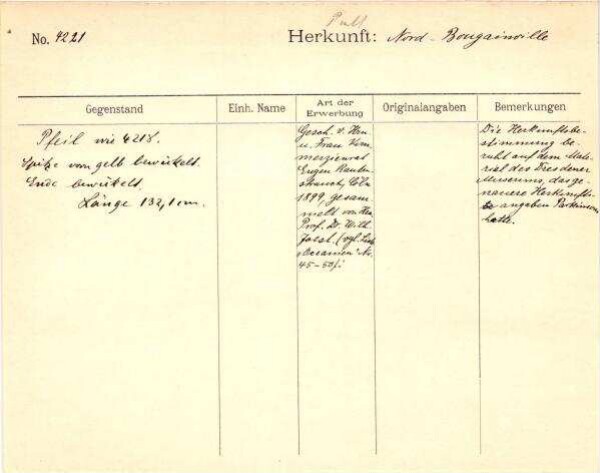 No. 4221
Herkunft: Nord-Bougainville
Gegenstand
Einh. Name
Art der Erwerbung
Originalangaben
Bemerkungen
Pfeil wie 4218.
Spitze vorn gelb bewickelt.
Ende bewickelt.
Länge 132,1 cm.
Gesch. v. Herrn
u. Frau Kom-
merzienrat
Eugen Rauten-
strauch, Cöln
1899, gesam-
melt von Herrn
Prof. Dr. Wilh.
Joest. (vgl.
"Oceanien" No.
45-50).
Die Herkunftsbe-
stimmung be-
ruht auf dem Mate-
rial des Dresdener
Museums, das ge-
nauere Herkunfts-
angaben Parkinsons
hatte.